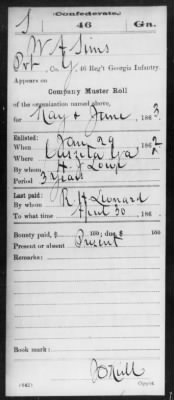 Confederate.
S 46 Ga.
W J Sims
Pvt, Co. G, 46 Reg't Georgia Infantry.
Appears on
Company Muster Roll
of the organization named above,
for May & June, 1863.
Enlisted:
When Jan 29, 1862
Where Ga
By whom
Period 3 years
Last paid:
By whom R H Leonard
To what time April 30, 186
Bounty paid $ 100; due $ 100
Present or absent Present
Remarks:
Book mark:
(642) Copyist.